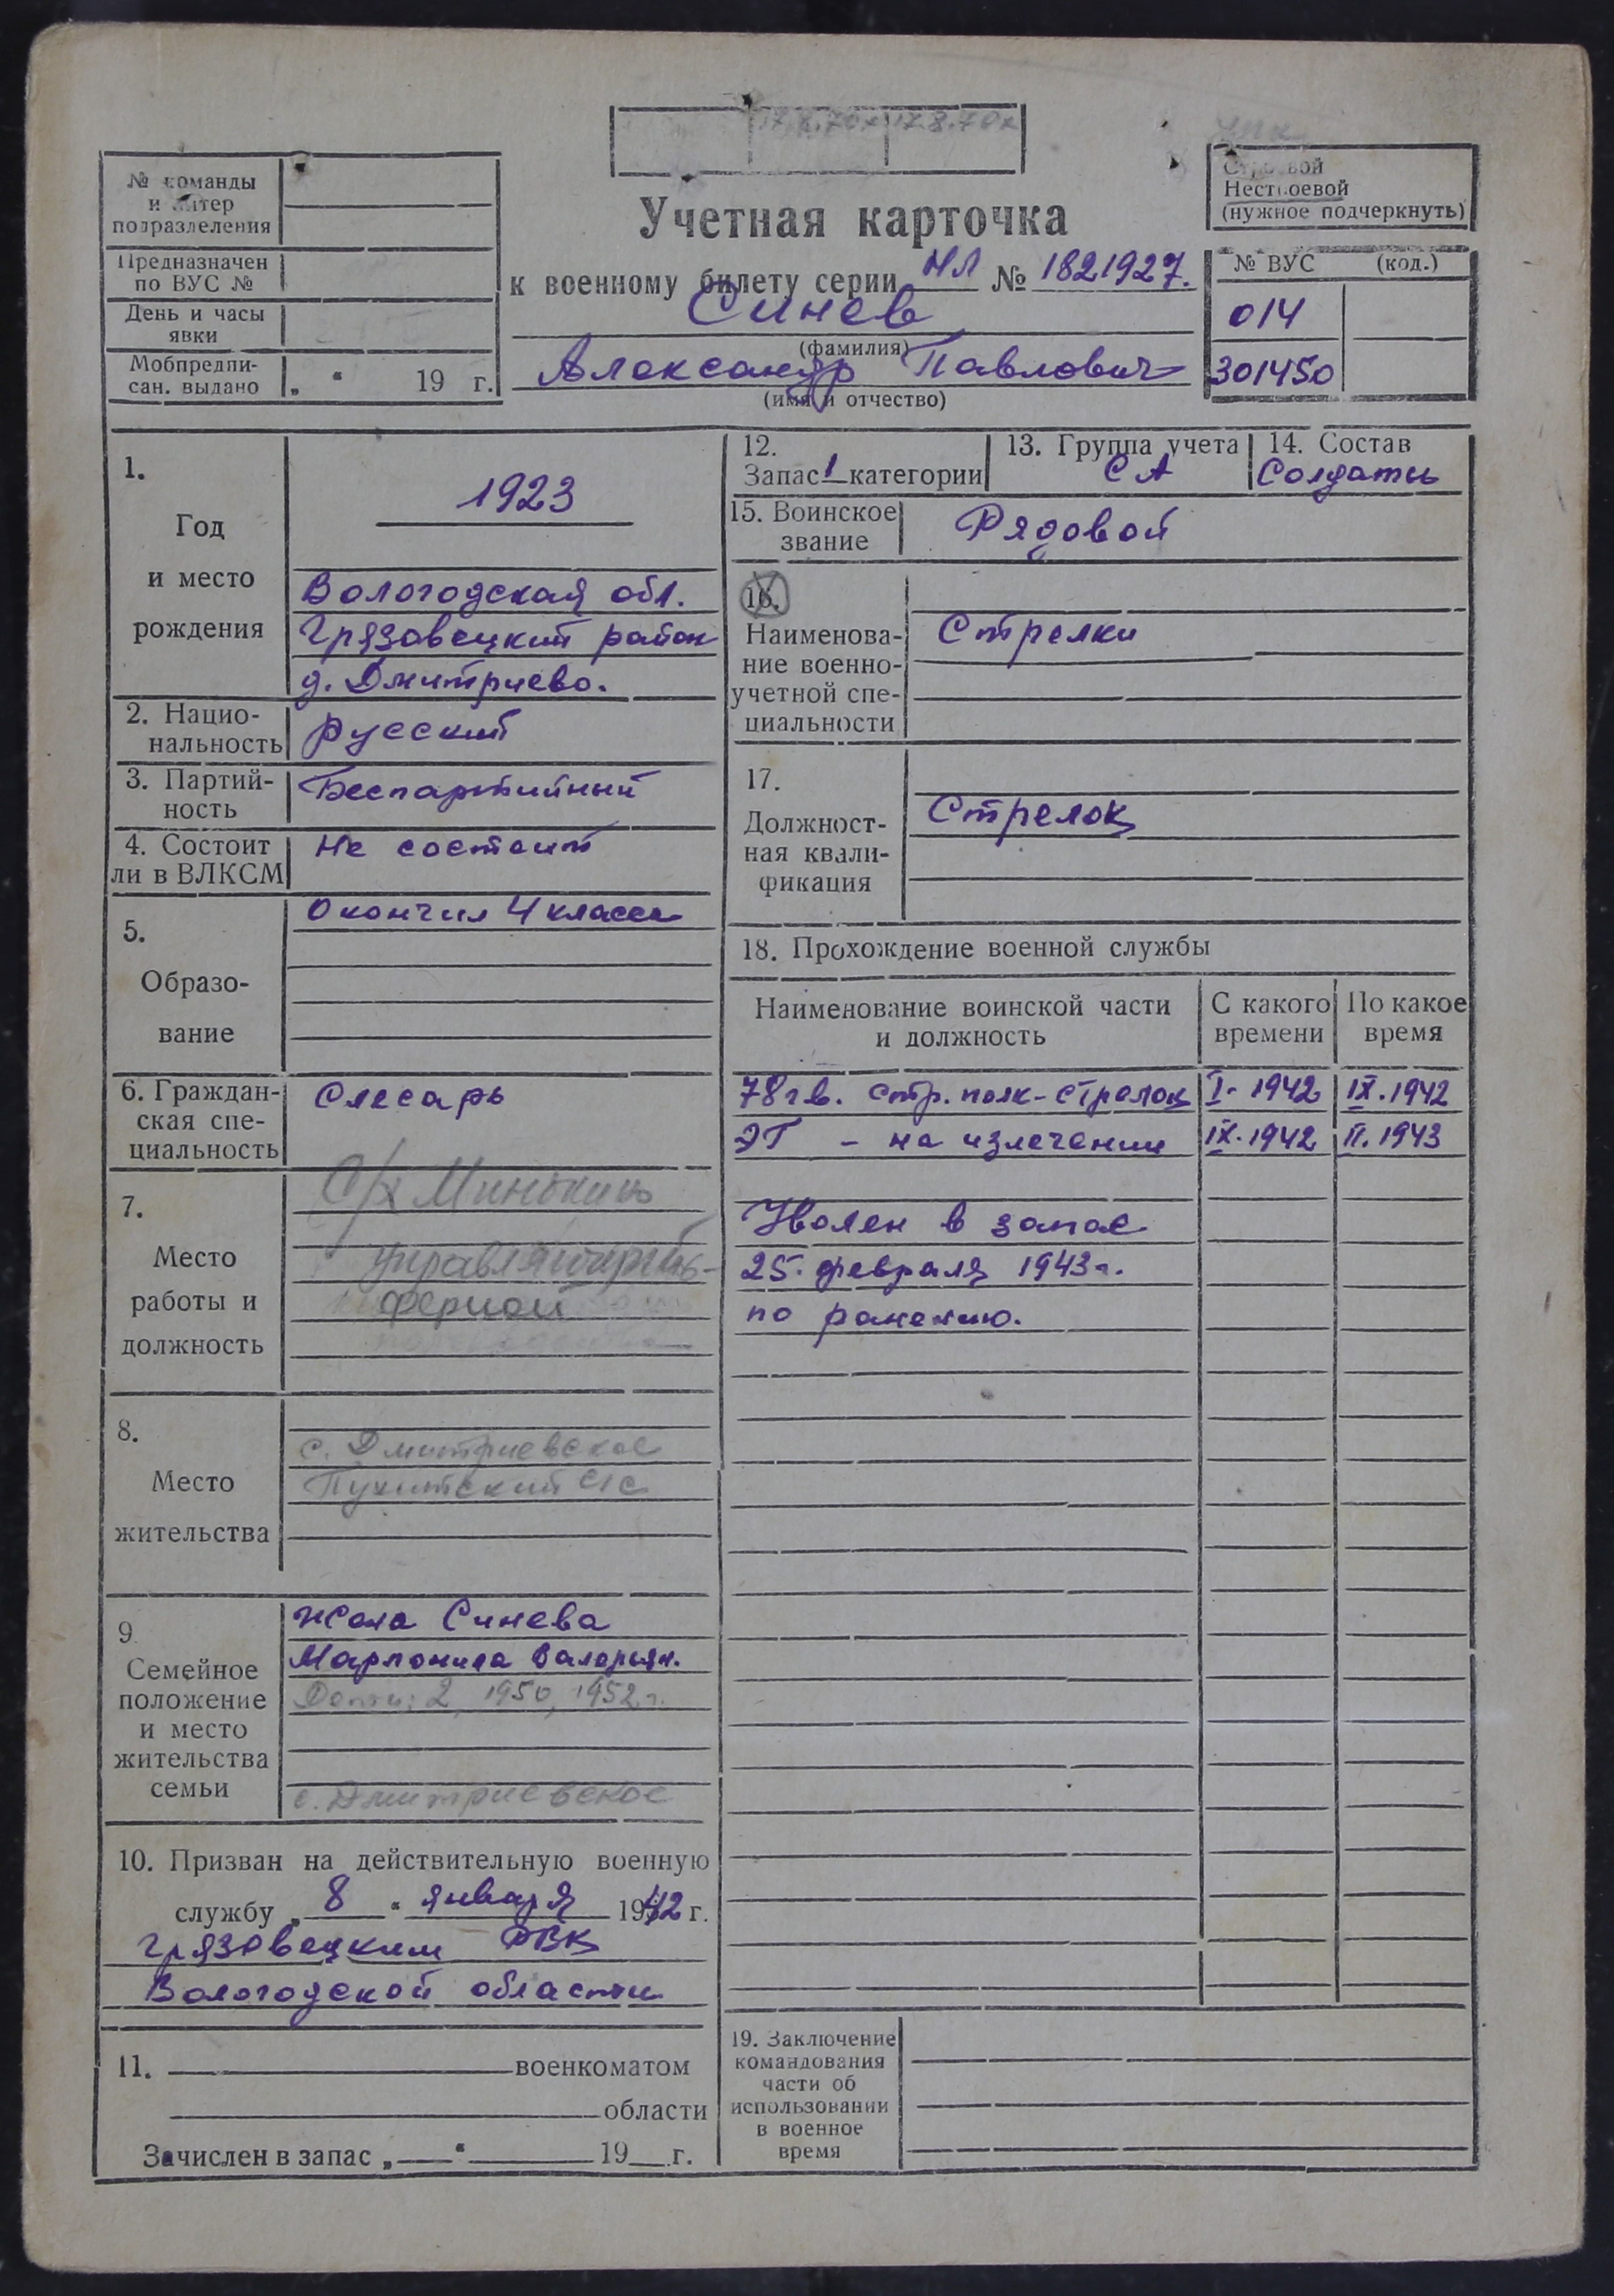 17.8.70г 17.8.70г
№ команды
и литер
подразделения
Предназначен
по ВУС №
День и часы
явки
Мобпредпи-
сан. выдано „ “ 19 г.
Учетная карточка
к военному билету серии НЛ № 1821927.
Синев
(фамилия)
Александр Павлович
(имя и отчество)
Строевой
Нестроевой
(нужное подчеркнуть)
№ ВУС (код.)
014
301450
1.
Год
и место
рождения
1923
Вологодская обл.
Грязовецкий район
д. Дмитриево.
2. Нацио-
нальность
русский
3. Партий-
ность
Беспартийный
4. Состоит
ли в ВЛКСМ
Не состоит
5.
Образо-
вание
Окончил 4 класса
6. Граждан-
ская спе-
циальность
Слесарь
7.
Место
работы и
должность
С/х Минькино
управляющий
фермой
8.
Место
жительства
с. Дмитриевское
с/с
9
Семейное
положение
и место
жительства
семьи
Жена Синева
Марионила Валерьян.
Дети: 2, 1950, 1952 г.
с. Дмитриевское
10. Призван на действительную военную
службу „ 8 “ января 1942 г.
Грязовецким РВК
Вологодской области
11. военкоматом
области
Зачислен в запас „ “ 19 г.
12.
Запас 1 категории
13. Группа учета
СА
14. Состав
Солдаты
15. Воинское
звание
Рядовой
16.
Наименова-
ние военно-
учетной спе-
циальности
Стрелки
17.
Должност-
ная квали-
фикация
Стрелок
18. Прохождение военной службы
Наименование воинской части
и должность
С какого
времени
По какое
время
78 гв. стр. полк - стрелок I. 1942 IX. 1942
ЭГ - на излечении IX. 1942 II. 1943
Уволен в запас
25. февраля 1943 г.
по ранению.
19. Заключение
командования
части об
использовании
в военное
время